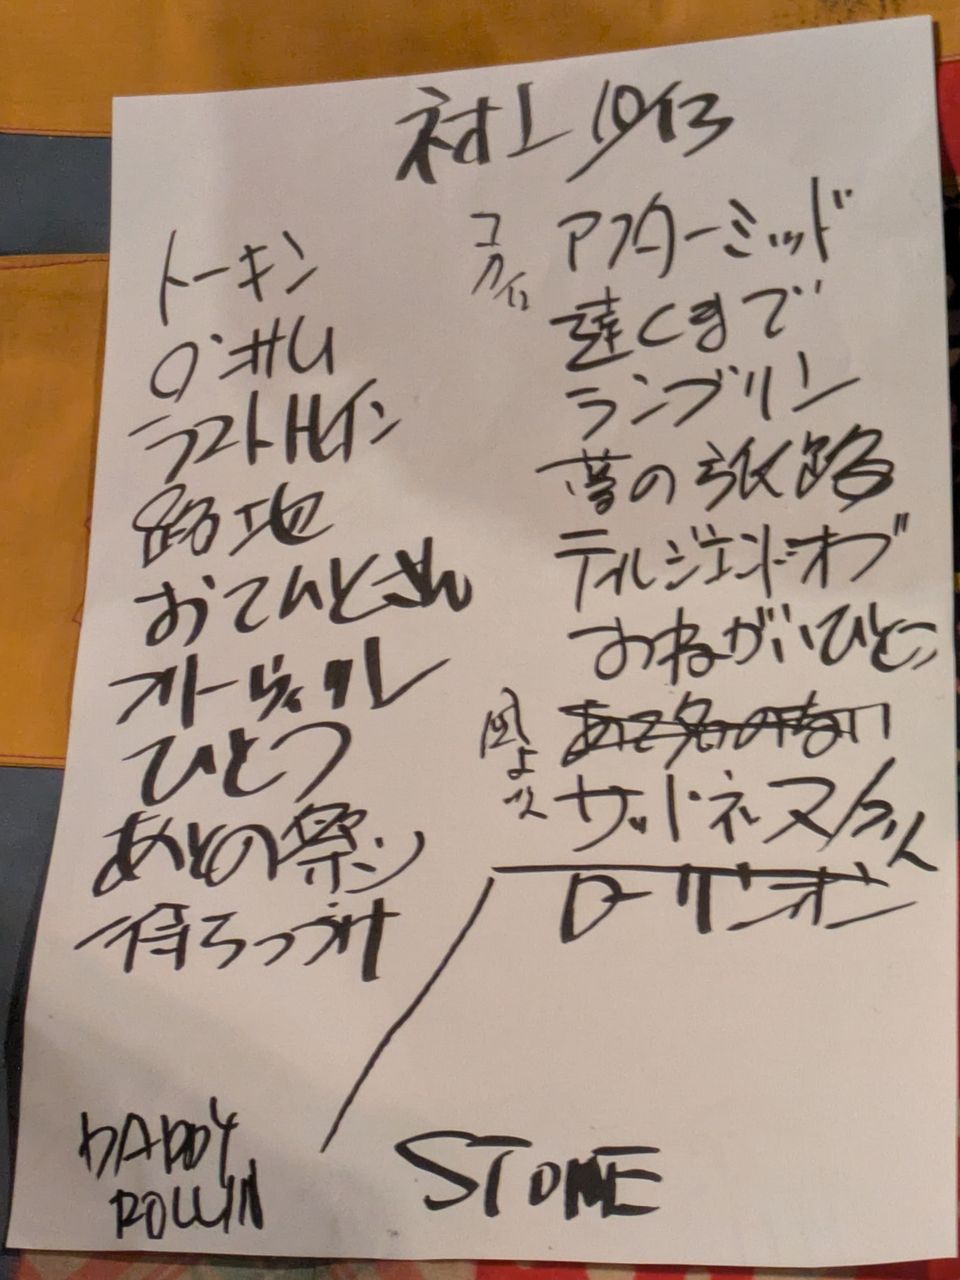 村上
トーキン
ラストトレイン
路地
おてんとさん
オートヴィル
ひとつ
あとの祭り
待ちつづけ
DADDY
ROLLIN
コカイン
アフターミッド
遠くまで
ランブリン
夢の旅路
ティルジエンドオブ
おねがいひとつ
あて名のない
風よ
サッドネス
ローリンオン
STONE